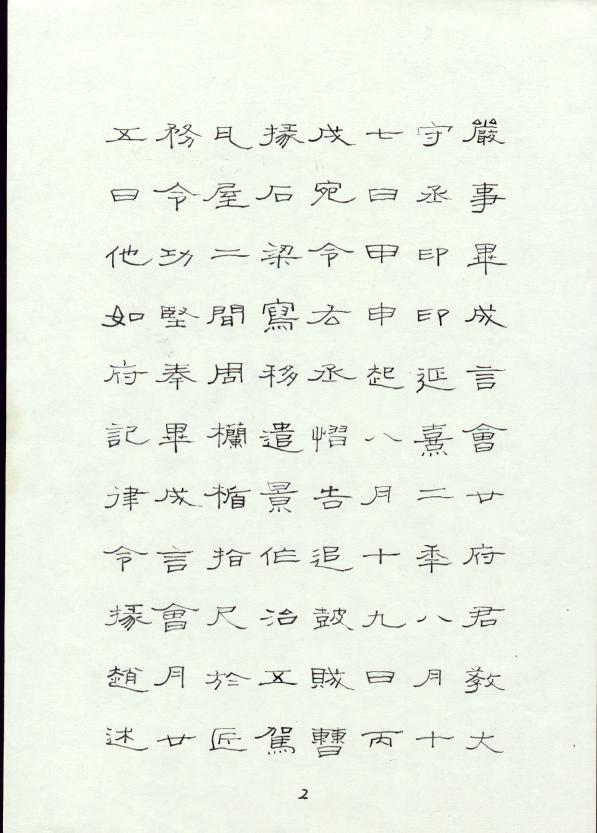 嚴事畢成言會廿府君教大
守丞印印延熹二秊八月十
七日甲申起八月十九日丙
戌宛令右丞慴告追鼓賊曹
掾石梁寫移遣景作治五駕
瓦屋二間周欄楯拾尺於匠
務令功堅奉畢成言會月廿
五日他如府記律令掾趙述
2